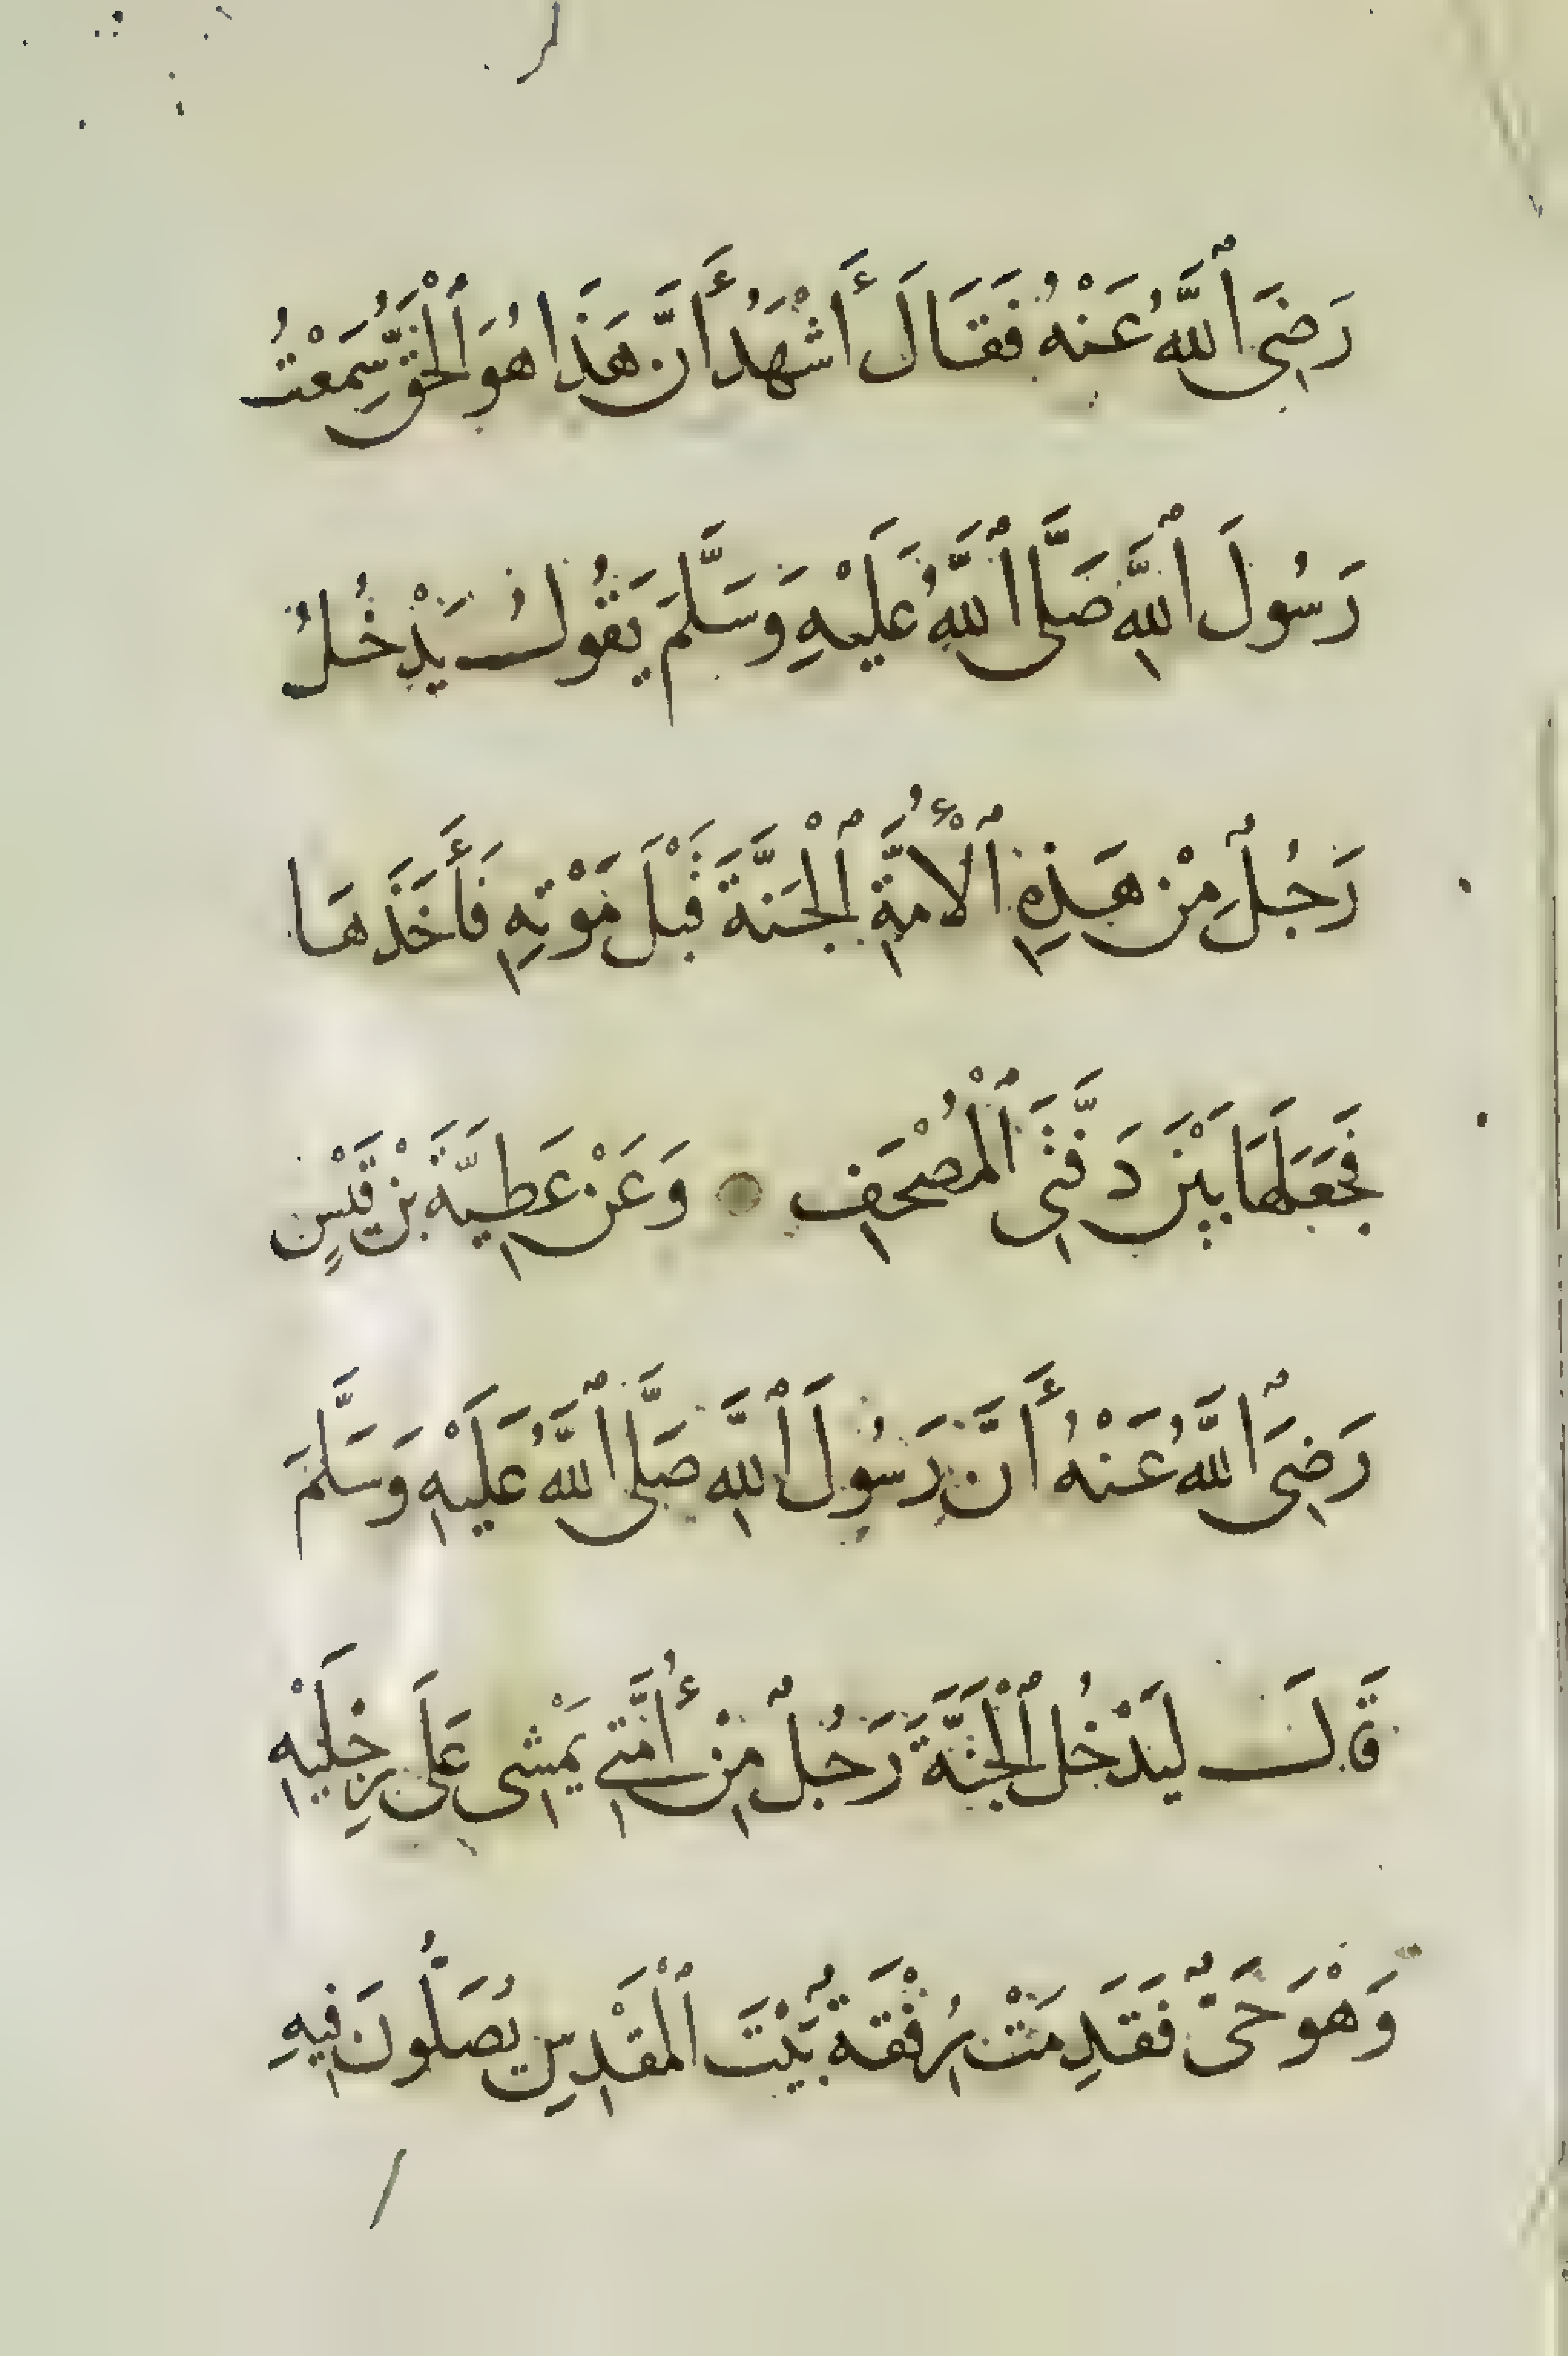 رَضِيَ ٱللَّهُ عَنْهُ فَقَالَ أَشْهَدُ أَنَّ هَذَا هُوَ ٱلْحَقُّ سَمِعْتُ
رَسُولَ ٱللَّهِ صَلَّى ٱللَّهُ عَلَيْهِ وَسَلَّمَ يَقُولُ يَدْخُلُ
رَجُلٌ مِنْ هَذِهِ ٱلْأُمَّةِ ٱلْجَنَّةَ قَبْلَ مَوْتِهِ فَأَخَذَهَا
فَجَعَلَهَا بَيْنَ دَفَّتَيِ ٱلْمُصْحَفِ وَعَنْ عَطِيَّةَ بْنِ قَيْسٍ
رَضِيَ ٱللَّهُ عَنْهُ أَنَّ رَسُولَ ٱللَّهِ صَلَّى ٱللَّهُ عَلَيْهِ وَسَلَّمَ
قَالَ لَيَدْخُلُ ٱلْجَنَّةَ رَجُلٌ مِنْ أُمَّتِي يَمْشِي عَلَى رِجْلَيْهِ
وَهْوَ حَيٌّ فَقَدِمَتْ رُفْقَةٌ بَيْتَ ٱلْمَقْدِسِ يُصَلُّونَ فِيهِ